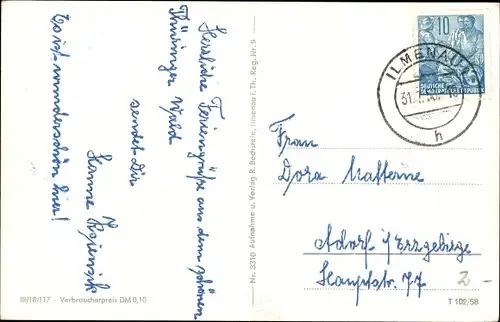 Herzliche Feriengrüße aus dem schönen
Thüringer Wald
sendet Dir
Hanne
Es ist wunderschön hier!
III/18/117 - Verbraucherpreis DM 0,10
Nr. 3310 Aufnahme u. Verlag R. Bechstein, Ilmenau i. Th. Reg.-Nr. 9
10
DEUTSCHE
DEMOKRATISCHE REPUBLIK
ILMENAU
31.
h
Frau
Dora Matterne
Adorf i/ Erzgebirge
Hauptstr. 77
2-
T 102/58